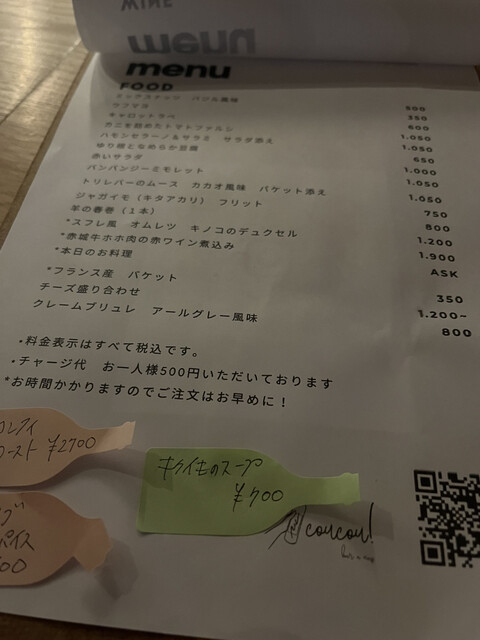 WINE
menu
menu
FOOD
ミックスナッツ バジル風味 500
ウフマヨ 350
キャロットラペ 600
カニを詰めたトマトファルシ 1.050
ハモンセラーノ&サラミ サラダ添え 1.050
ゆり根となめらか豆腐 650
赤いサラダ 1.000
バンバンジーミモレット 1.050
トリレバーのムース カカオ風味 バケット添え 1.050
ジャガイモ(キタアカリ) フリット 750
羊の春巻(1本) 800
*スフレ風 オムレツ キノコのデュクセル 1.200
*赤城牛ホホ肉の赤ワイン煮込み 1.900
*本日のお料理 ASK
*フランス産 バケット 350
チーズ盛り合わせ 1.200~
クレームブリュレ アールグレー風味 800
・料金表示はすべて税込です。
・チャージ代 お一人様500円いただいております
*お時間かかりますのでご注文はお早めに!
コンフィ
ロースト ¥2700
キクイモのスープ
¥700
coucou!